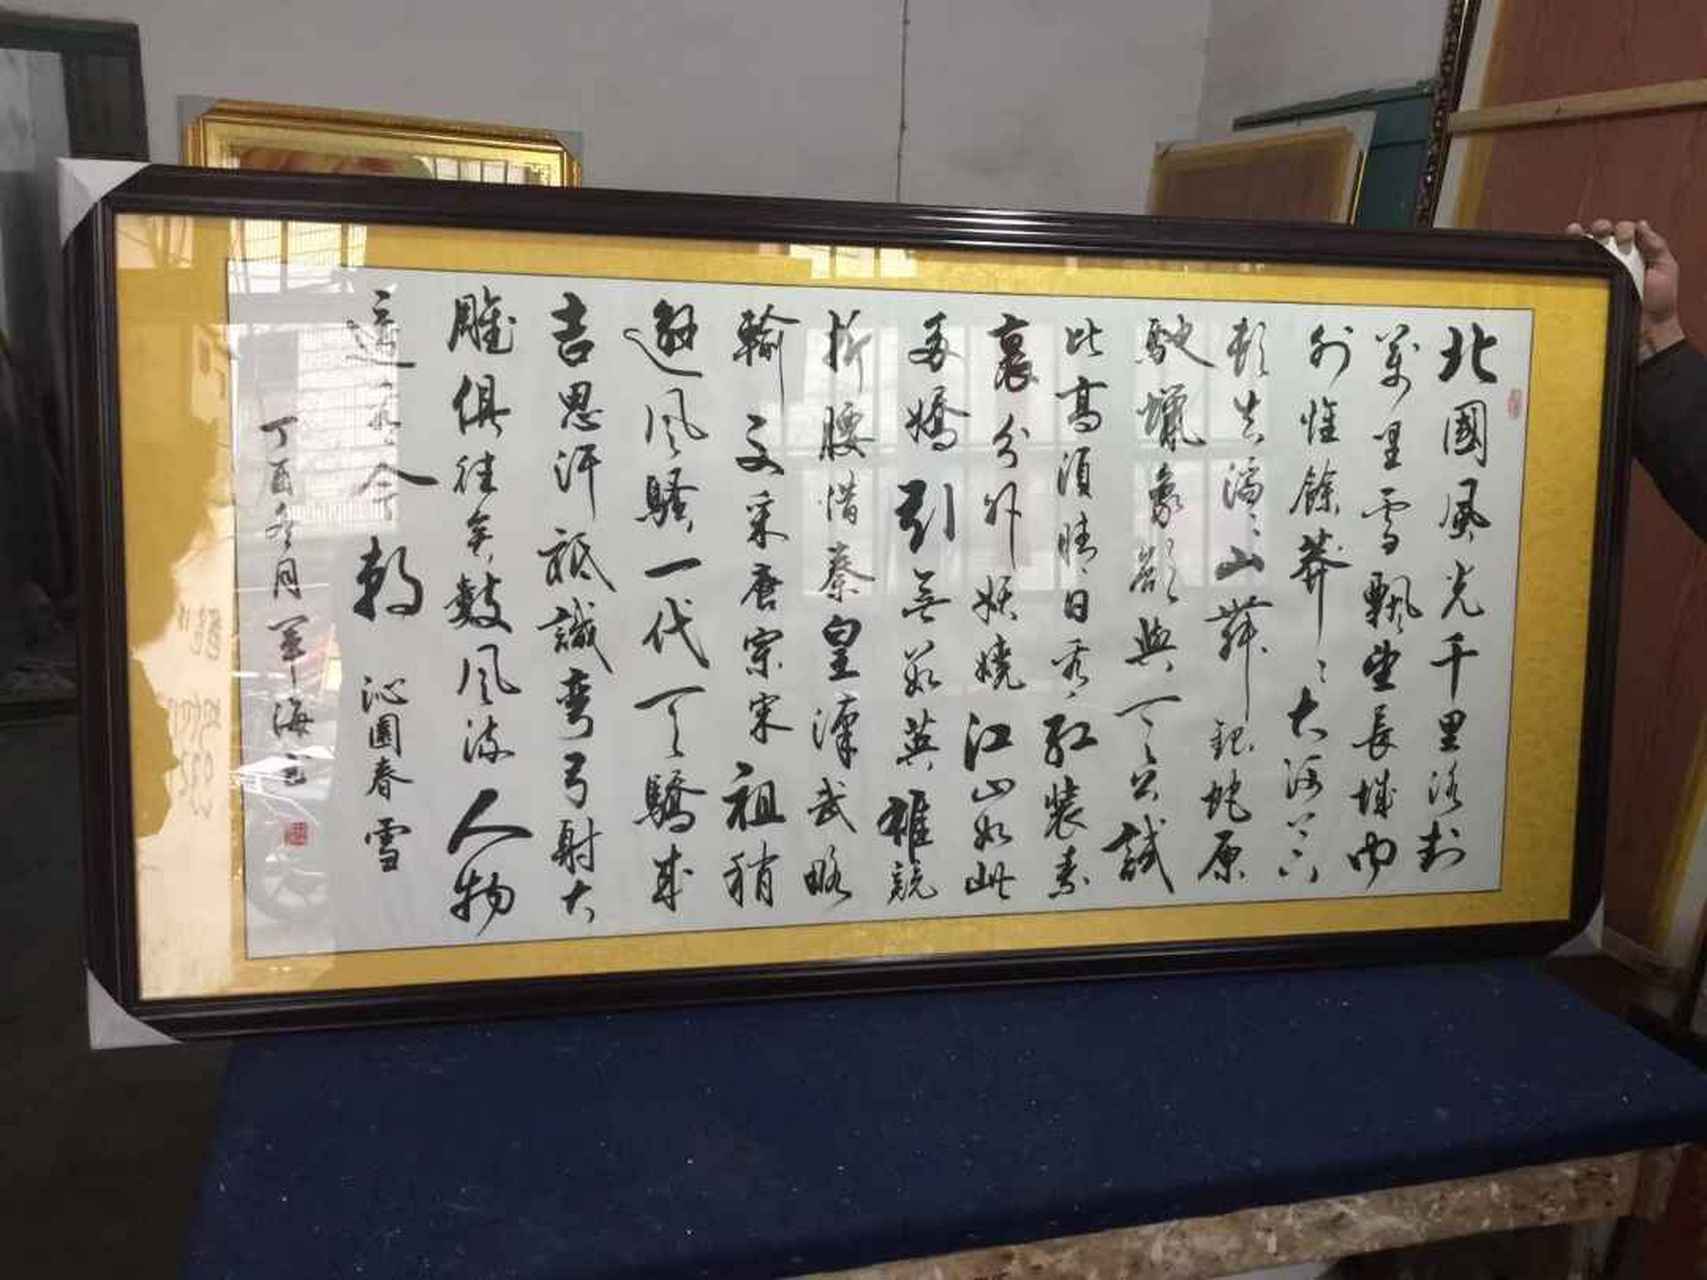 北國風光千里冰封
萬里雪飄望長城內
外惟餘莽〻大河上下
頓失滔〻山舞銀蛇原
馳蠟象欲與天公試
比高須晴日看紅裝素
裹分外妖嬈江山如此
多嬌引無數英雄競
折腰惜秦皇漢武略
輸文采唐宗宋祖稍
遜風騷一代天驕成
吉思汗祇識彎弓射大
雕俱往矣數風流人物
還看今朝 沁園春雪
丁酉冬月軍海書